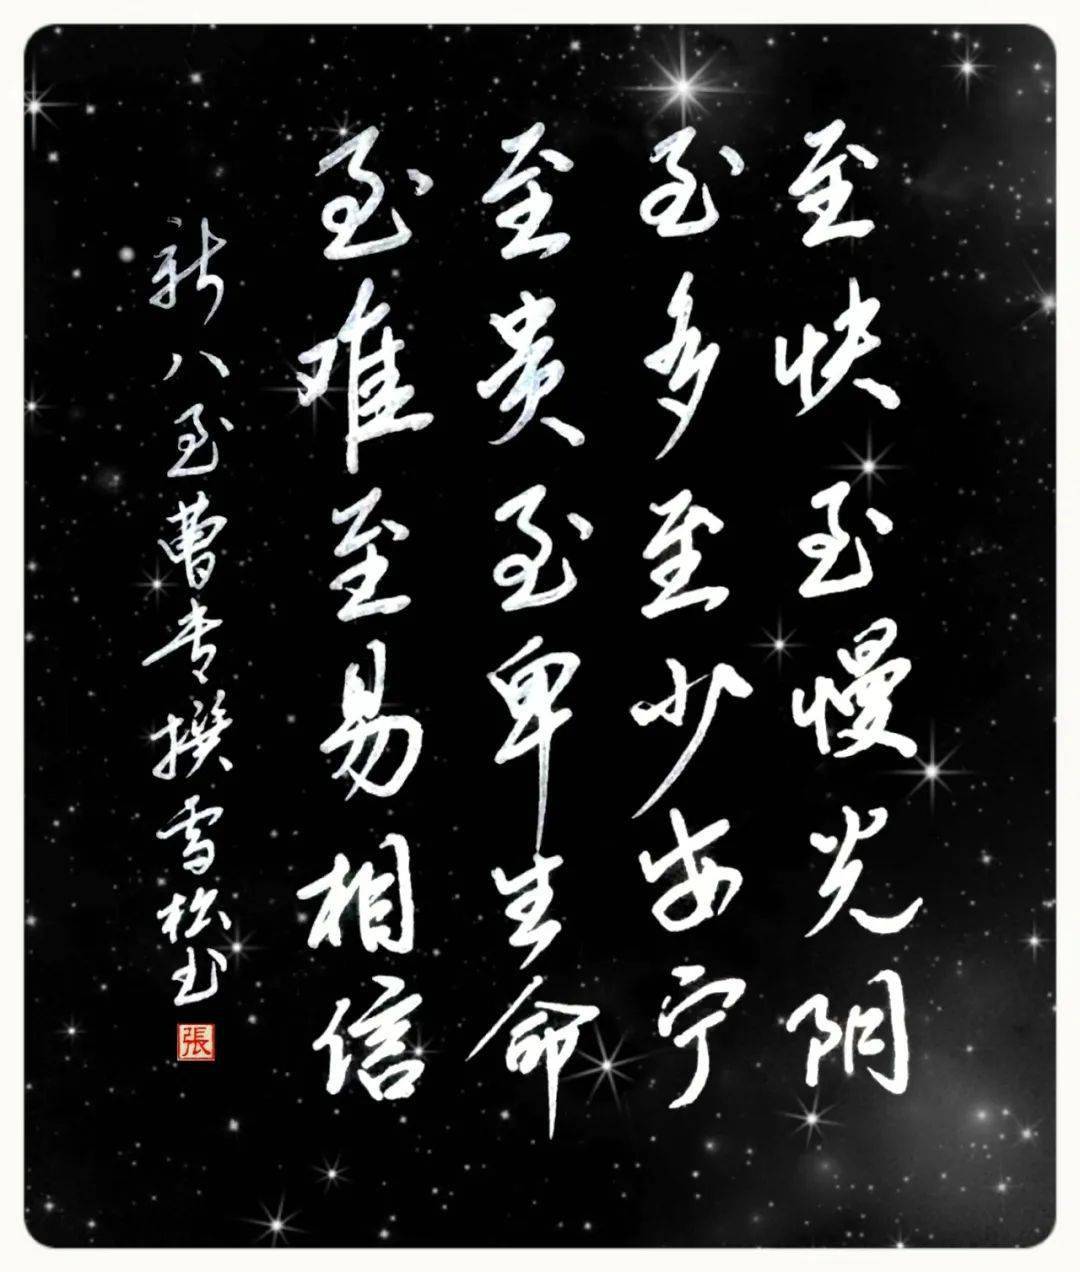 至快至慢光阴
至多至少安宁
至贵至卑生命
至难至易相信
新八至曹专撰雪松书
張